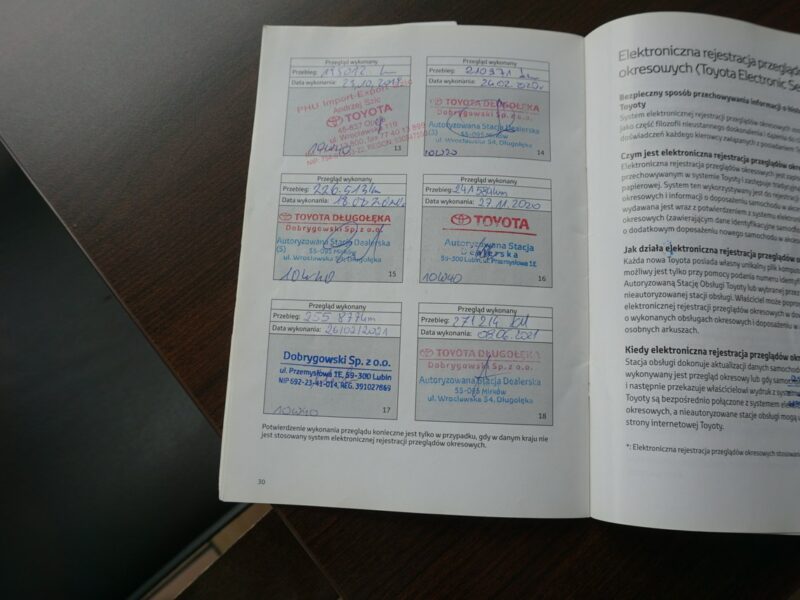 Przegląd wykonany
Przebieg: km
Data wykonania: 23.10.
PHU Import-Export
Andrzej Szic
TOYOTA
ul. Wrocławska 119
13
10W40
Przegląd wykonany
Przebieg: 210371 km
Data wykonania: 26.02.2020r
TOYOTA DŁUGOŁĘKA
Dobrygowski Sp. z o.o.
Autoryzowana Stacja Dealerska
55-095 Mirków
ul. Wrocławska 54, Długołęka
10W20
14
Przegląd wykonany
Przebieg: 226.513km
Data wykonania:
TOYOTA DŁUGOŁĘKA
Dobrygowski Sp. z o.o.
Autoryzowana Stacja Dealerska
(5)
55-095 Mirków
ul. Wrocławska 54, Długołęka
10W40
15
Przegląd wykonany
Przebieg: 241584km
Data wykonania: 27.11.2020
TOYOTA
Autoryzowana Stacja
Dealerska
59-300 Lubin, ul. Przemysłowa 1E
10W40
16
Przegląd wykonany
Przebieg: 255 877km
Data wykonania: 26/02/2021
Dobrygowski Sp. z o.o.
ul. Przemysłowa 1E, 59-300 Lubin
NIP 692-23-41-014, REG. 391027669
10W40
17
Przegląd wykonany
Przebieg: 271214 KM
Data wykonania: 08.06.2021
TOYOTA DŁUGOŁĘKA
Dobrygowski Sp. z o.o.
Autoryzowana Stacja Dealerska
55-095 Mirków
ul. Wrocławska 54, Długołęka
18
Potwierdzenie wykonania przeglądu konieczne jest tylko w przypadku, gdy w danym kraju nie
jest stosowany system elektronicznej rejestracji przeglądów okresowych.
30
Elektroniczna rejestracja przeglądó
okresowych (Toyota Electronic Se
Bezpieczny sposób przechowywania informacji o histo
Toyoty
System elektronicznej rejestracji przeglądów okresowych
Jako część filozofii nieustannego doskonalenia i dążenia do
doświadczeń każdego kierowcy związanych z posiadaniem
Czym jest elektroniczna rejestracja przeglądów okres
Elektroniczna rejestracja przeglądów okresowych jest
przechowywanym w systemie Toyoty i zastępuje tradycyjną
papierowej. System ten wykorzystywany jest do rejestracji
okresowych i informacji o doposażeniu samochodu w akces
wydawana jest wraz z potwierdzeniem z systemu elektronicz
okresowych (zawierającym dane identyfikacyjne samochodu
o dodatkowym doposażeniu nowego samochodu w akceso
Jak działa elektroniczna rejestracja przeglądów o
Każda nowa Toyota posiada własny unikalny plik kompu
możliwy jest tylko przy pomocy podania numeru identyfi
Autoryzowaną Stację Obsługi Toyoty lub wybranej przez
nieautoryzowanej stacji obsługi. Właściciel może poprosi
elektronicznej rejestracji przeglądów okresowych w dow
o wykonanych obsługach okresowych i doposażeniu w a
osobnych arkuszach.
Kiedy elektroniczna rejestracja przeglądów okres
Stacja obsługi dokonuje aktualizacji danych samochod
wykonywany jest przegląd okresowy lub gdy samo
i następnie przekazuje właścicielowi wydruk z system
Toyoty są bezpośrednio połączone z systemem elekt
okresowych, a nieautoryzowane stacje obsługi mogą
strony internetowej Toyoty.
*: Elektroniczna rejestracja przeglądów okresowych stosowan